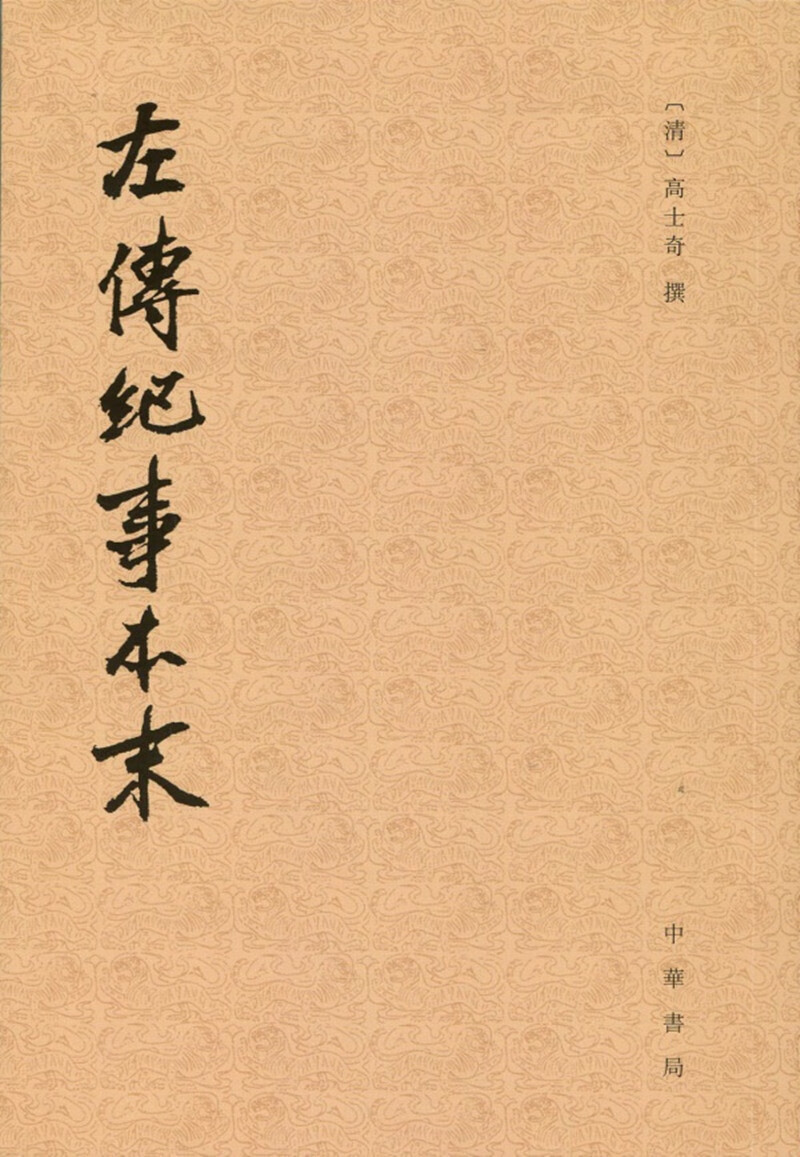 〔清〕高士奇 撰
左傳紀事本末
中華書局